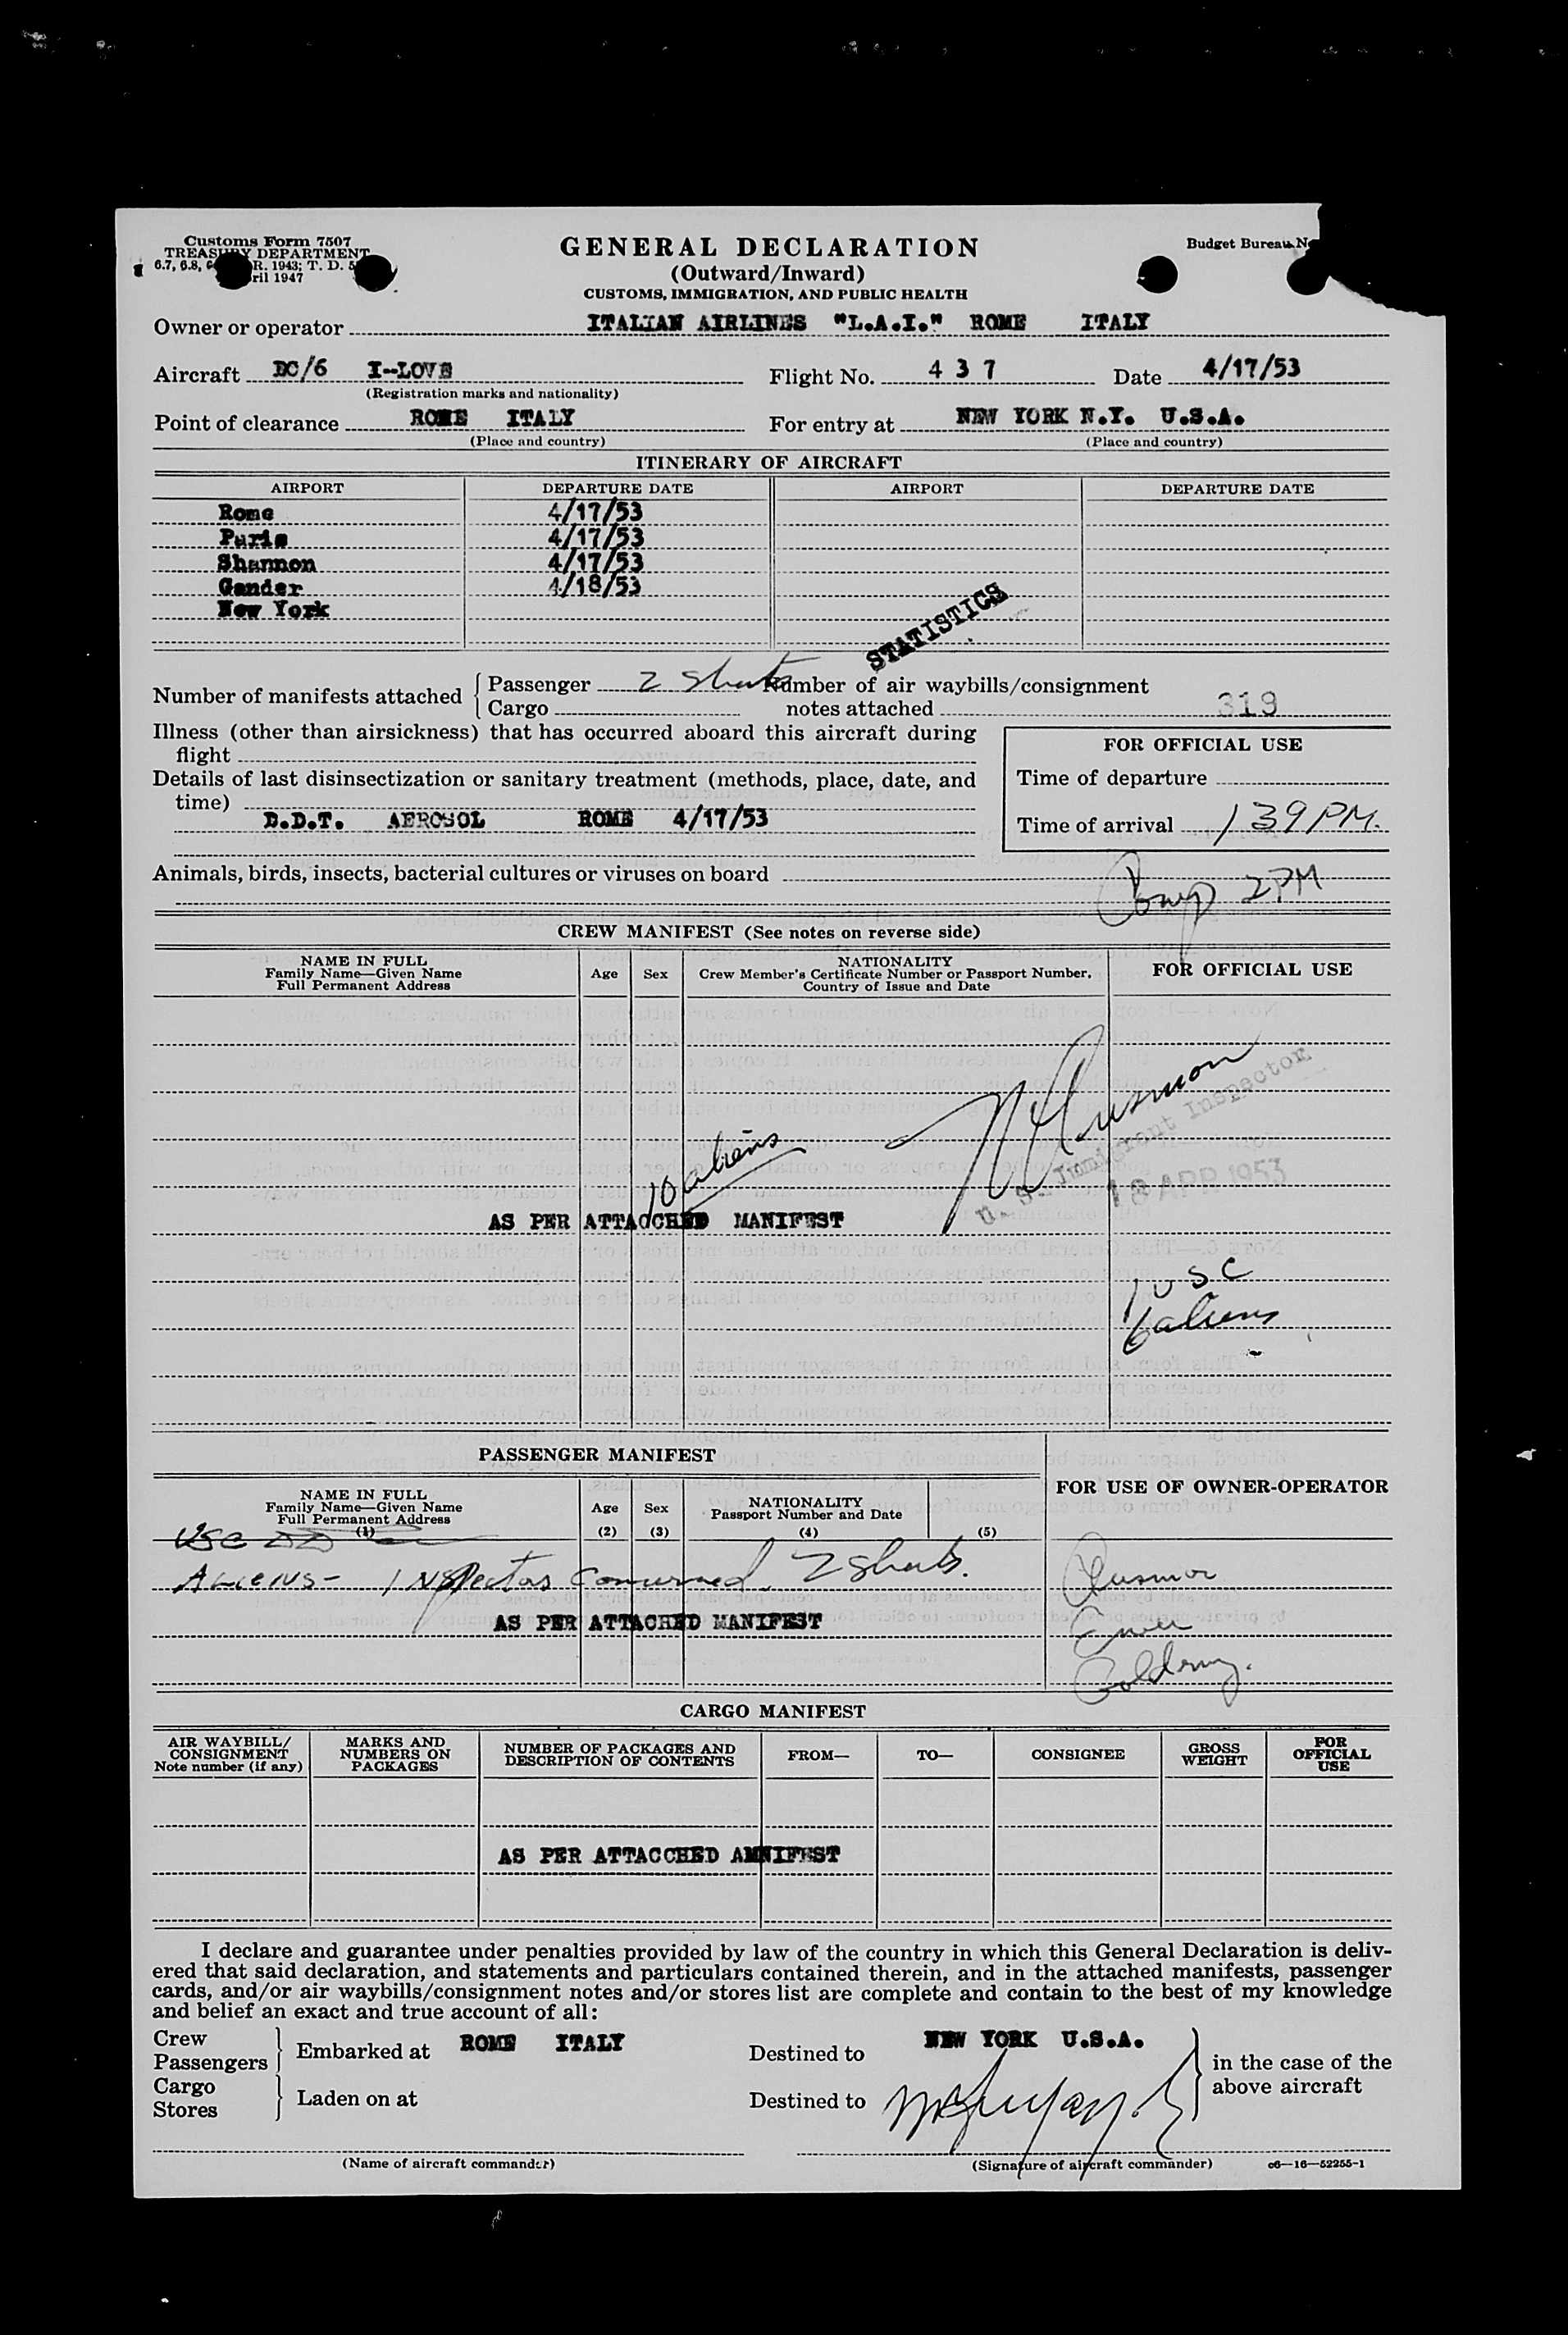 Customs Form 7507
TREASURY DEPARTMENT
6.7, 6.8, R. 1943; T. D.
ril 1947
GENERAL DECLARATION
(Outward/Inward)
CUSTOMS, IMMIGRATION, AND PUBLIC HEALTH
Budget Bureau N
Owner or operator ITALIAN AIRLINES "L.A.I." ROME ITALY
Aircraft DC/6 I-LOVE
(Registration marks and nationality)
Flight No. 4 3 7 Date 4/17/53
Point of clearance ROME ITALY
(Place and country)
For entry at NEW YORK N.Y. U.S.A.
(Place and country)
ITINERARY OF AIRCRAFT
AIRPORT DEPARTURE DATE AIRPORT DEPARTURE DATE
Rome 4/17/53
Paris 4/17/53
Shannon 4/17/53
Gander 4/18/53
New York
STATISTICS
Number of manifests attached
Passenger 2 Sheets
Cargo
Number of air waybills/consignment
notes attached 319
Illness (other than airsickness) that has occurred aboard this aircraft during
flight
Details of last disinsectization or sanitary treatment (methods, place, date, and
time)
D.D.T. AEROSOL ROME 4/17/53
FOR OFFICIAL USE
Time of departure
Time of arrival 1 39 PM.
Animals, birds, insects, bacterial cultures or viruses on board
Comp 2 PM
CREW MANIFEST (See notes on reverse side)
NAME IN FULL
Family Name—Given Name
Full Permanent Address
Age
Sex
NATIONALITY
Crew Member's Certificate Number or Passport Number,
Country of Issue and Date
FOR OFFICIAL USE
10 aliens
U. S. Immigrant Inspector
18 APR 1953
AS PER ATTACCHED MANIFEST
1 USC
6 aliens
PASSENGER MANIFEST
NAME IN FULL
Family Name—Given Name
Full Permanent Address
(1)
Age
(2)
Sex
(3)
NATIONALITY
Passport Number and Date
(4)
(5)
FOR USE OF OWNER-OPERATOR
USC
ALIENS- Inspectors Concerned. 2 Sheets.
AS PER ATTACHED MANIFEST
CARGO MANIFEST
AIR WAYBILL/
CONSIGNMENT
Note number (if any)
MARKS AND
NUMBERS ON
PACKAGES
NUMBER OF PACKAGES AND
DESCRIPTION OF CONTENTS
FROM—
TO—
CONSIGNEE
GROSS
WEIGHT
FOR
OFFICIAL
USE
AS PER ATTACCHED AMNIFEST
I declare and guarantee under penalties provided by law of the country in which this General Declaration is deliv-
ered that said declaration, and statements and particulars contained therein, and in the attached manifests, passenger
cards, and/or air waybills/consignment notes and/or stores list are complete and contain to the best of my knowledge
and belief an exact and true account of all:
Crew
Passengers
Embarked at ROME ITALY
Destined to NEW YORK U.S.A.
Cargo
Stores
Laden on at
Destined to
in the case of the
above aircraft
(Name of aircraft commander)
(Signature of aircraft commander)
c6—16—52255-1